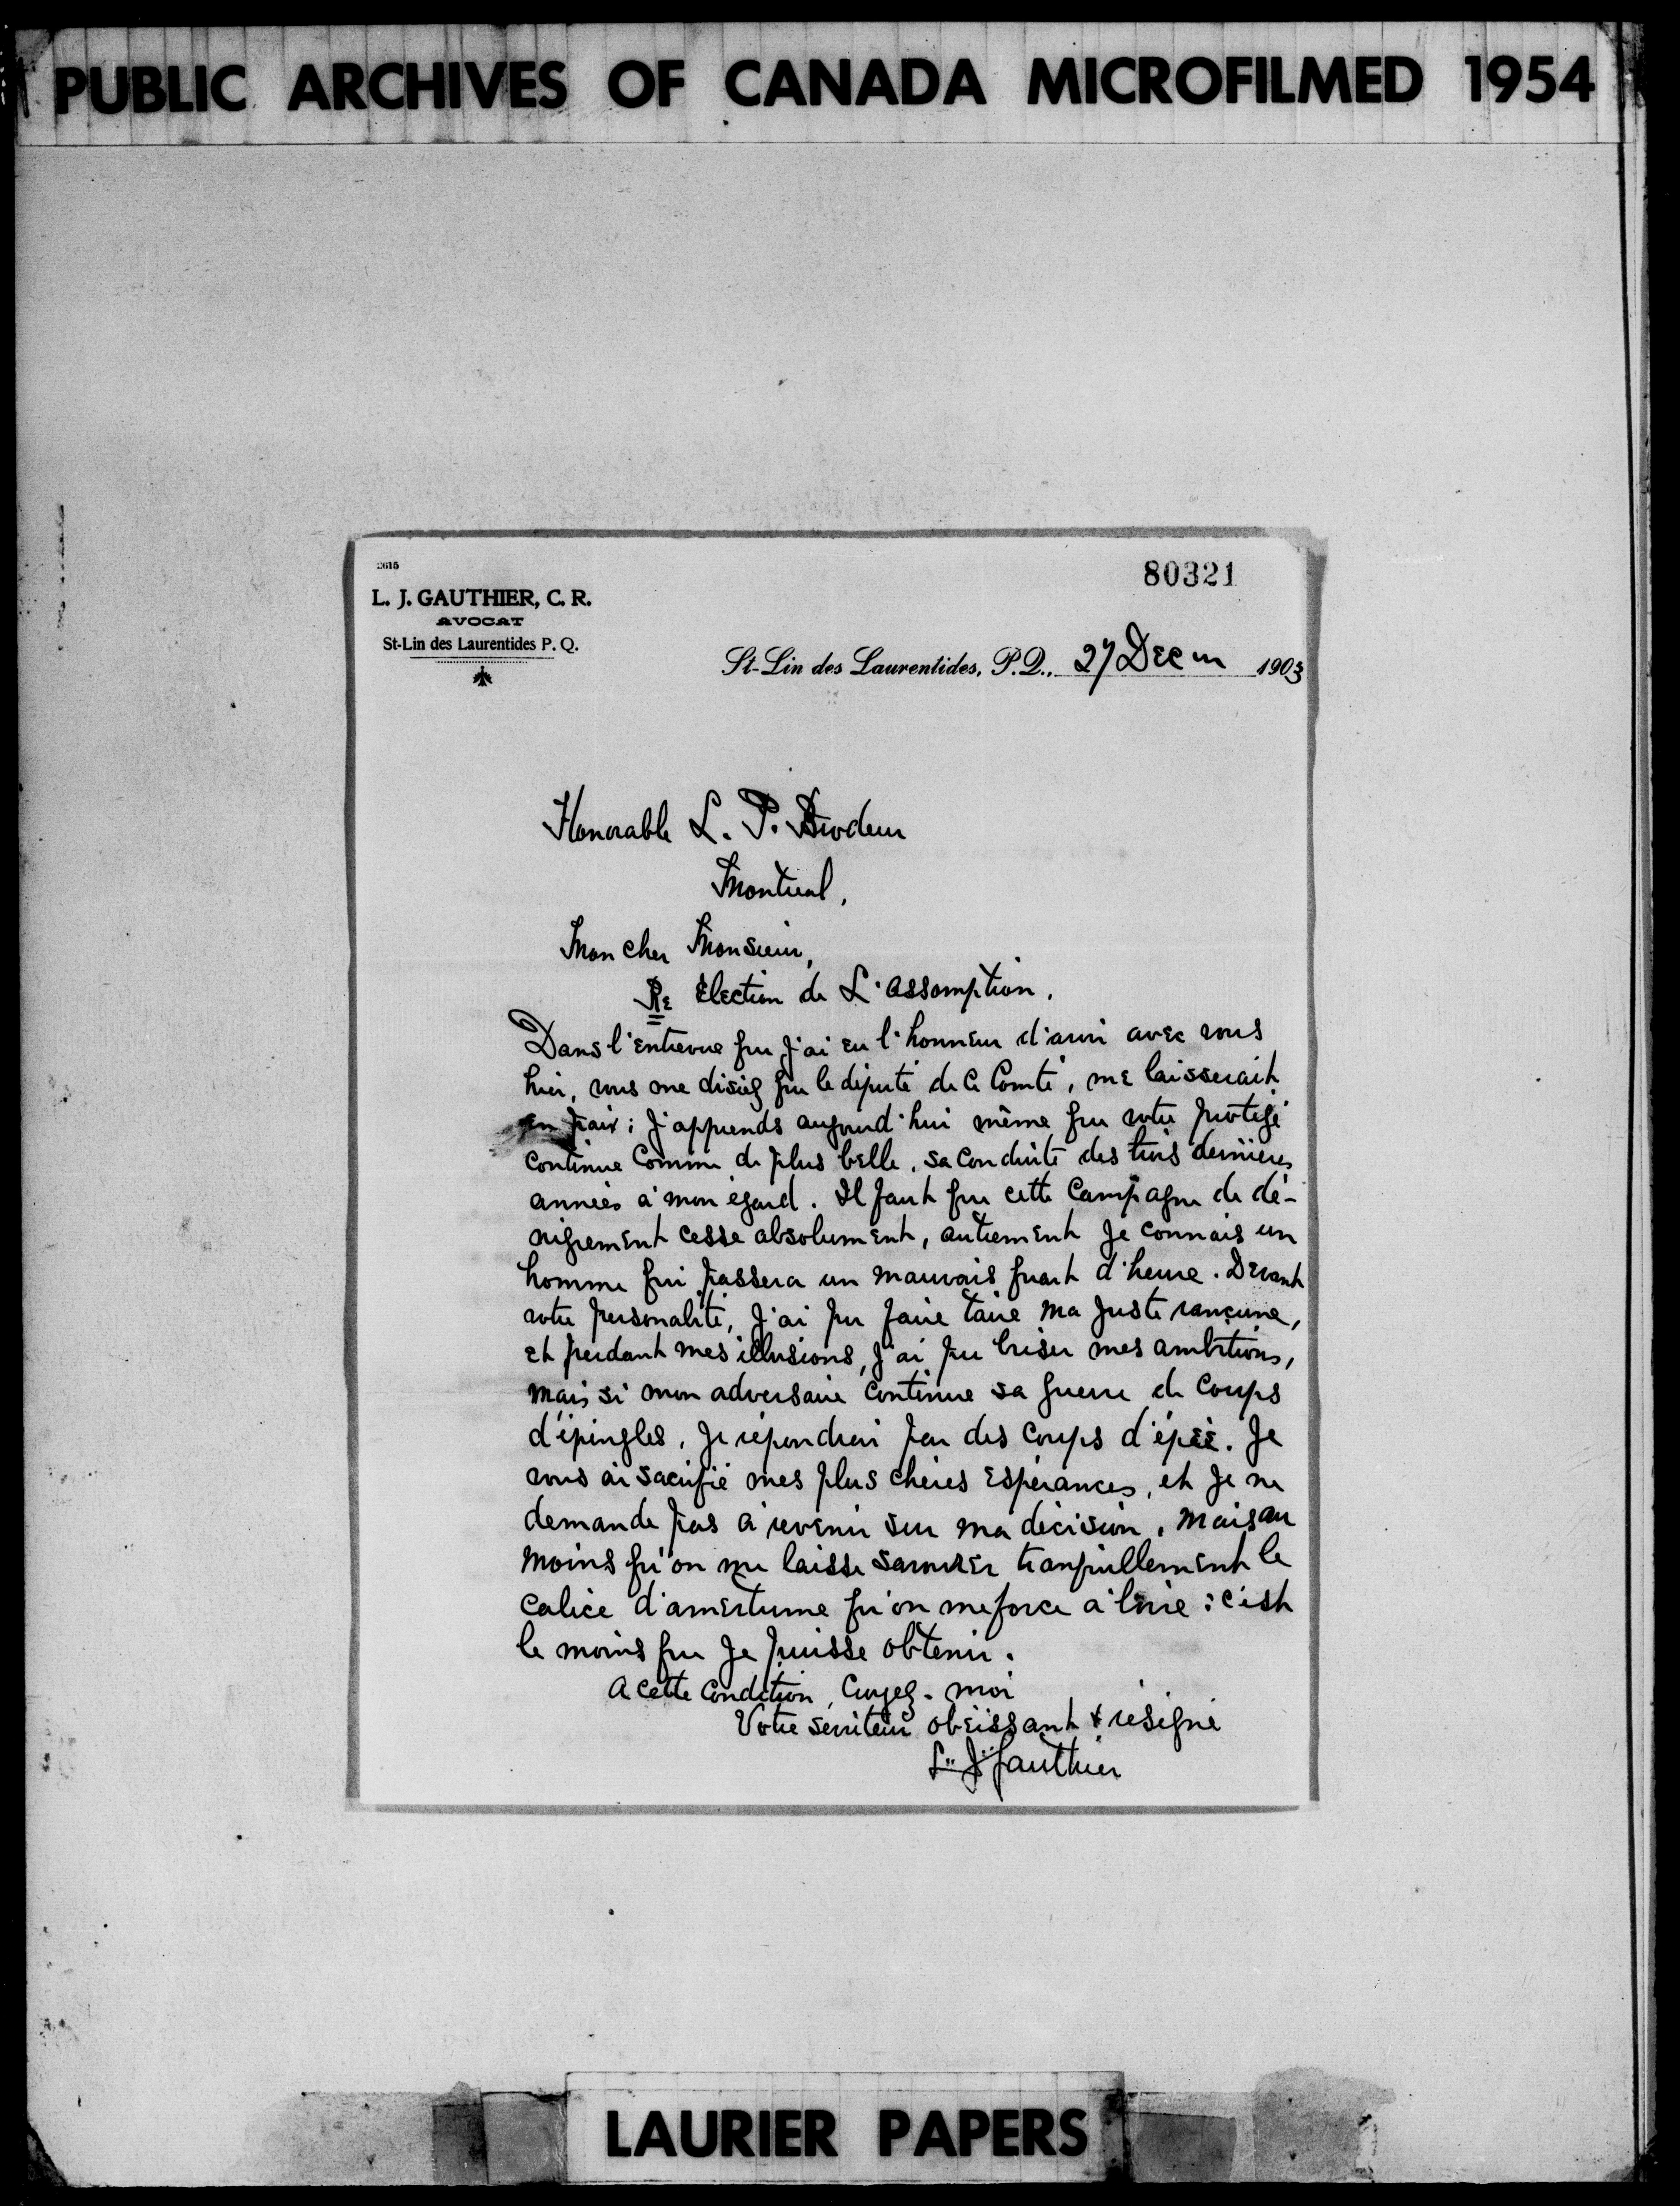 PUBLIC ARCHIVES OF CANADA MICROFILMED 1954
2615
80321
L. J. GAUTHIER, C. R.
AVOCAT
St-Lin des Laurentides P. Q.
St-Lin des Laurentides, P.Q., 27 Decm 1903
Honorable L. P. Brodeur
Montreal,
Mon cher Monsieur,
Re Election de L'assomption.
Dans l'entrevue que j'ai eu l'honneur d'avoir avec vous
hier, vous me disiez que le député de ce Comté, me laisserait
en paix; J'apprends aujourd'hui même que votre protégé
continue comme de plus belle, sa conduite des trois dernières
années à mon égard. Il faut que cette campagne de dé-
nigrement cesse absolument, autrement je connais un
homme qui passera un mauvais quart d'heure. Devant
votre personalité, j'ai pu faire taire ma juste rancune,
et perdant mes illusions, j'ai pu briser mes ambitions,
mais si mon adversaire continue sa guerre de coups
d'épingles, je répondrai par des coups d'épée. Je
vous ai sacrifié mes plus chères espérances, et je ne
demande pas à revenir sur ma décision, mais au
moins qu'on me laisse savourer tranquillement le
calice d'amertume qu'on me force à boire: c'est
le moins que je puisse obtenir.
A cette condition, croyez-moi
Votre serviteur obéissant & résigné
L. J. Gauthier
LAURIER PAPERS